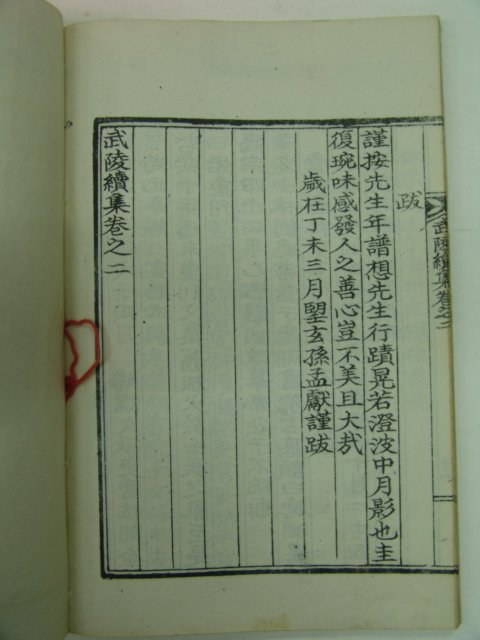 武陵續集卷之二
跋
謹按先生年譜想先生行蹟晃若澄波中月影也圭
復琬味感發人之善心豈不美且大哉
歲在丁未三月望玄孫孟獻謹跋
武陵續集卷之二